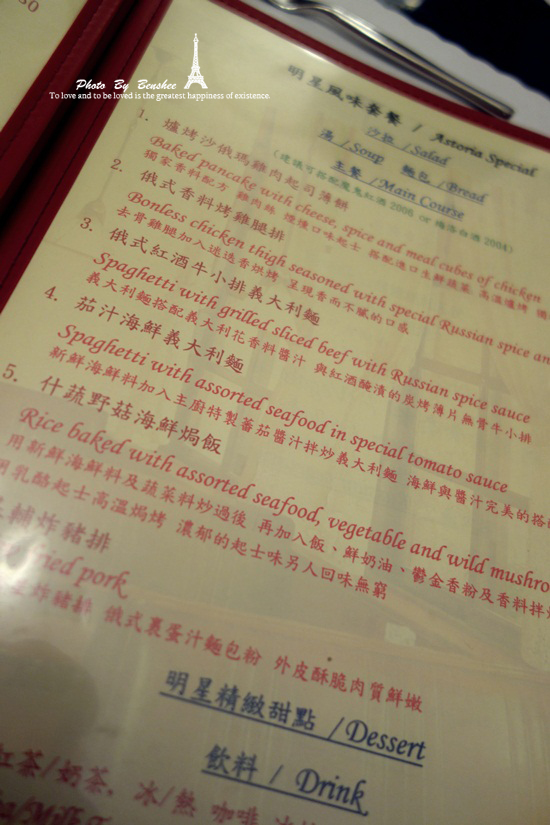 30
Photo By Benshee
To love and to be loved is the greatest happiness of existence.
明星風味套餐 / Astoria Special
沙拉 /Salad
湯 /Soup 麵包 /Bread
主餐 /Main Course
(建議可搭配魔鬼紅酒2006 or 梅洛白酒2004)
1. 爐烤沙俄瑪雞肉起司薄餅
Baked pancake with cheese, spice and meal cubes of chicken
獨家香料配方 雞肉絲 煙燻口味起士 搭配進口生鮮蔬菜 高溫爐烤
2. 俄式香料烤雞腿排
Bonless chicken thigh seasoned with special Russian spice an
去骨雞腿加入迷迭香烘烤 呈現香而不膩的口感
3. 俄式紅酒牛小排義大利麵
Spaghetti with grilled sliced beef with Russian spice sauce
義大利麵搭配義大利花香料醬汁 與紅酒醃漬的炭烤薄片無骨牛小排
4. 茄汁海鮮義大利麵
Spaghetti with assorted seafood in special tomato sauce
新鮮海鮮料加入主廚特製蕃茄醬汁拌炒義大利麵 海鮮與醬汁完美的搭
5. 什蔬野菇海鮮焗飯
Rice baked with assorted seafood, vegetable and wild mushro
用新鮮海鮮料及蔬菜料炒過後 再加入飯、鮮奶油、鬱金香粉及香料拌
乳酪起士高溫焗烤 濃郁的起士味另人回味無窮
輔炸豬排
ied pork
炸豬排 俄式裹蛋汁麵包粉 外皮酥脆肉質鮮嫩
明星精緻甜點 /Dessert
飲料 / Drink
紅茶/奶茶, 冰/熱 咖啡